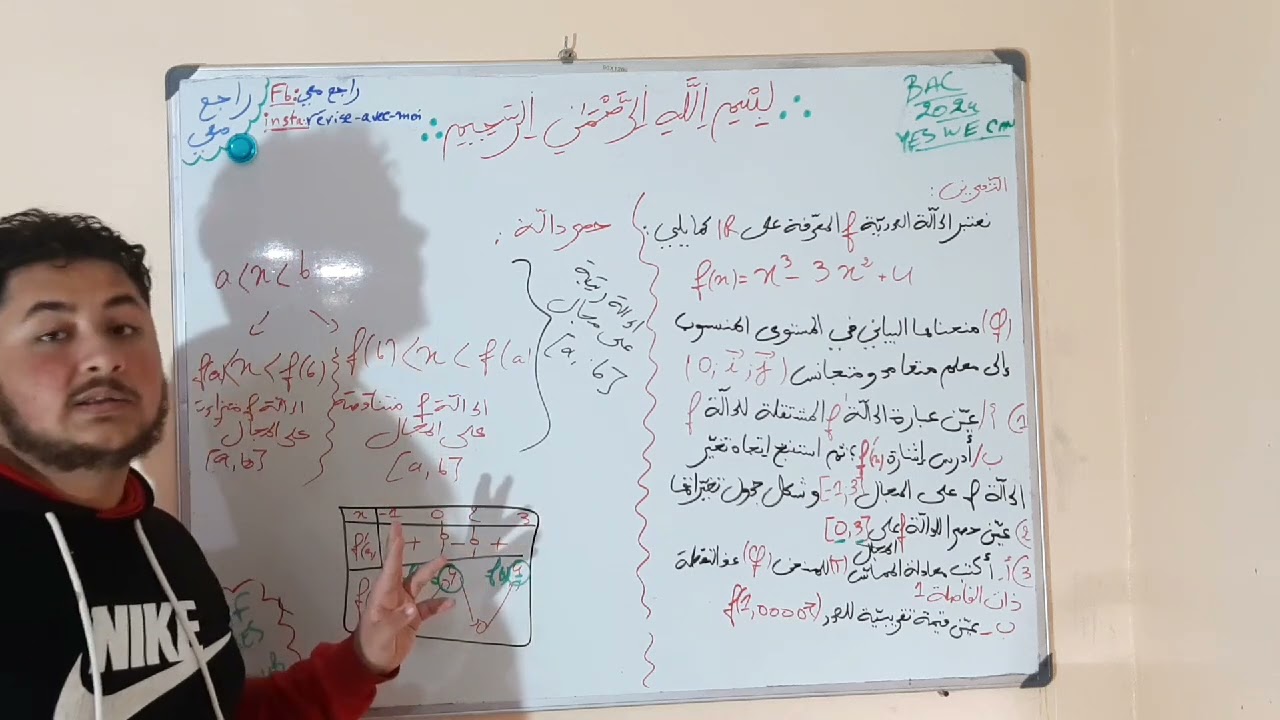 راجع معي
Fb: راجع معي
insta: révise-avec-moi
بسم الله الرحمن الرحيم
BAC
2024
YES WE CAN
التمرين:
نعتبر الدالة العددية f المعرّفة على IR كما يلي:
f(x)= x³ - 3x² + 4
(φ) منحناها البياني في المستوى المنسوب
إلى معلم متعامد ومتجانس (0; i; j)
1) أ/ عيّن عبارة الدالة f' المشتقة للدالة f
ب/ أدرس إشارة f'(x)؛ ثم استنتج اتجاه تغيّر
الدالة f على المجال [-1,3] وشكل جدول تغيراتها
2) عيّن حصر للدالة f على المجال [0,3]
3) أ- أكتب معادلة المماس (T) للمنحنى (φ) عند النقطة
ذات الفاصلة 1
ب- عيّن قيمة تقريبية للعدد f(1,00007)
حصر دالة:
الدالة رتيبة
على مجال
[a, b]
a < x < b
f(b) < x < f(a)
الدالة f متناقصة
على المجال
[a, b]
f(a) < x < f(b)
الدالة f متزايدة
على المجال
[a, b]
x -1 0 2 3
f'(x) + 0 - 0 +
NIKE